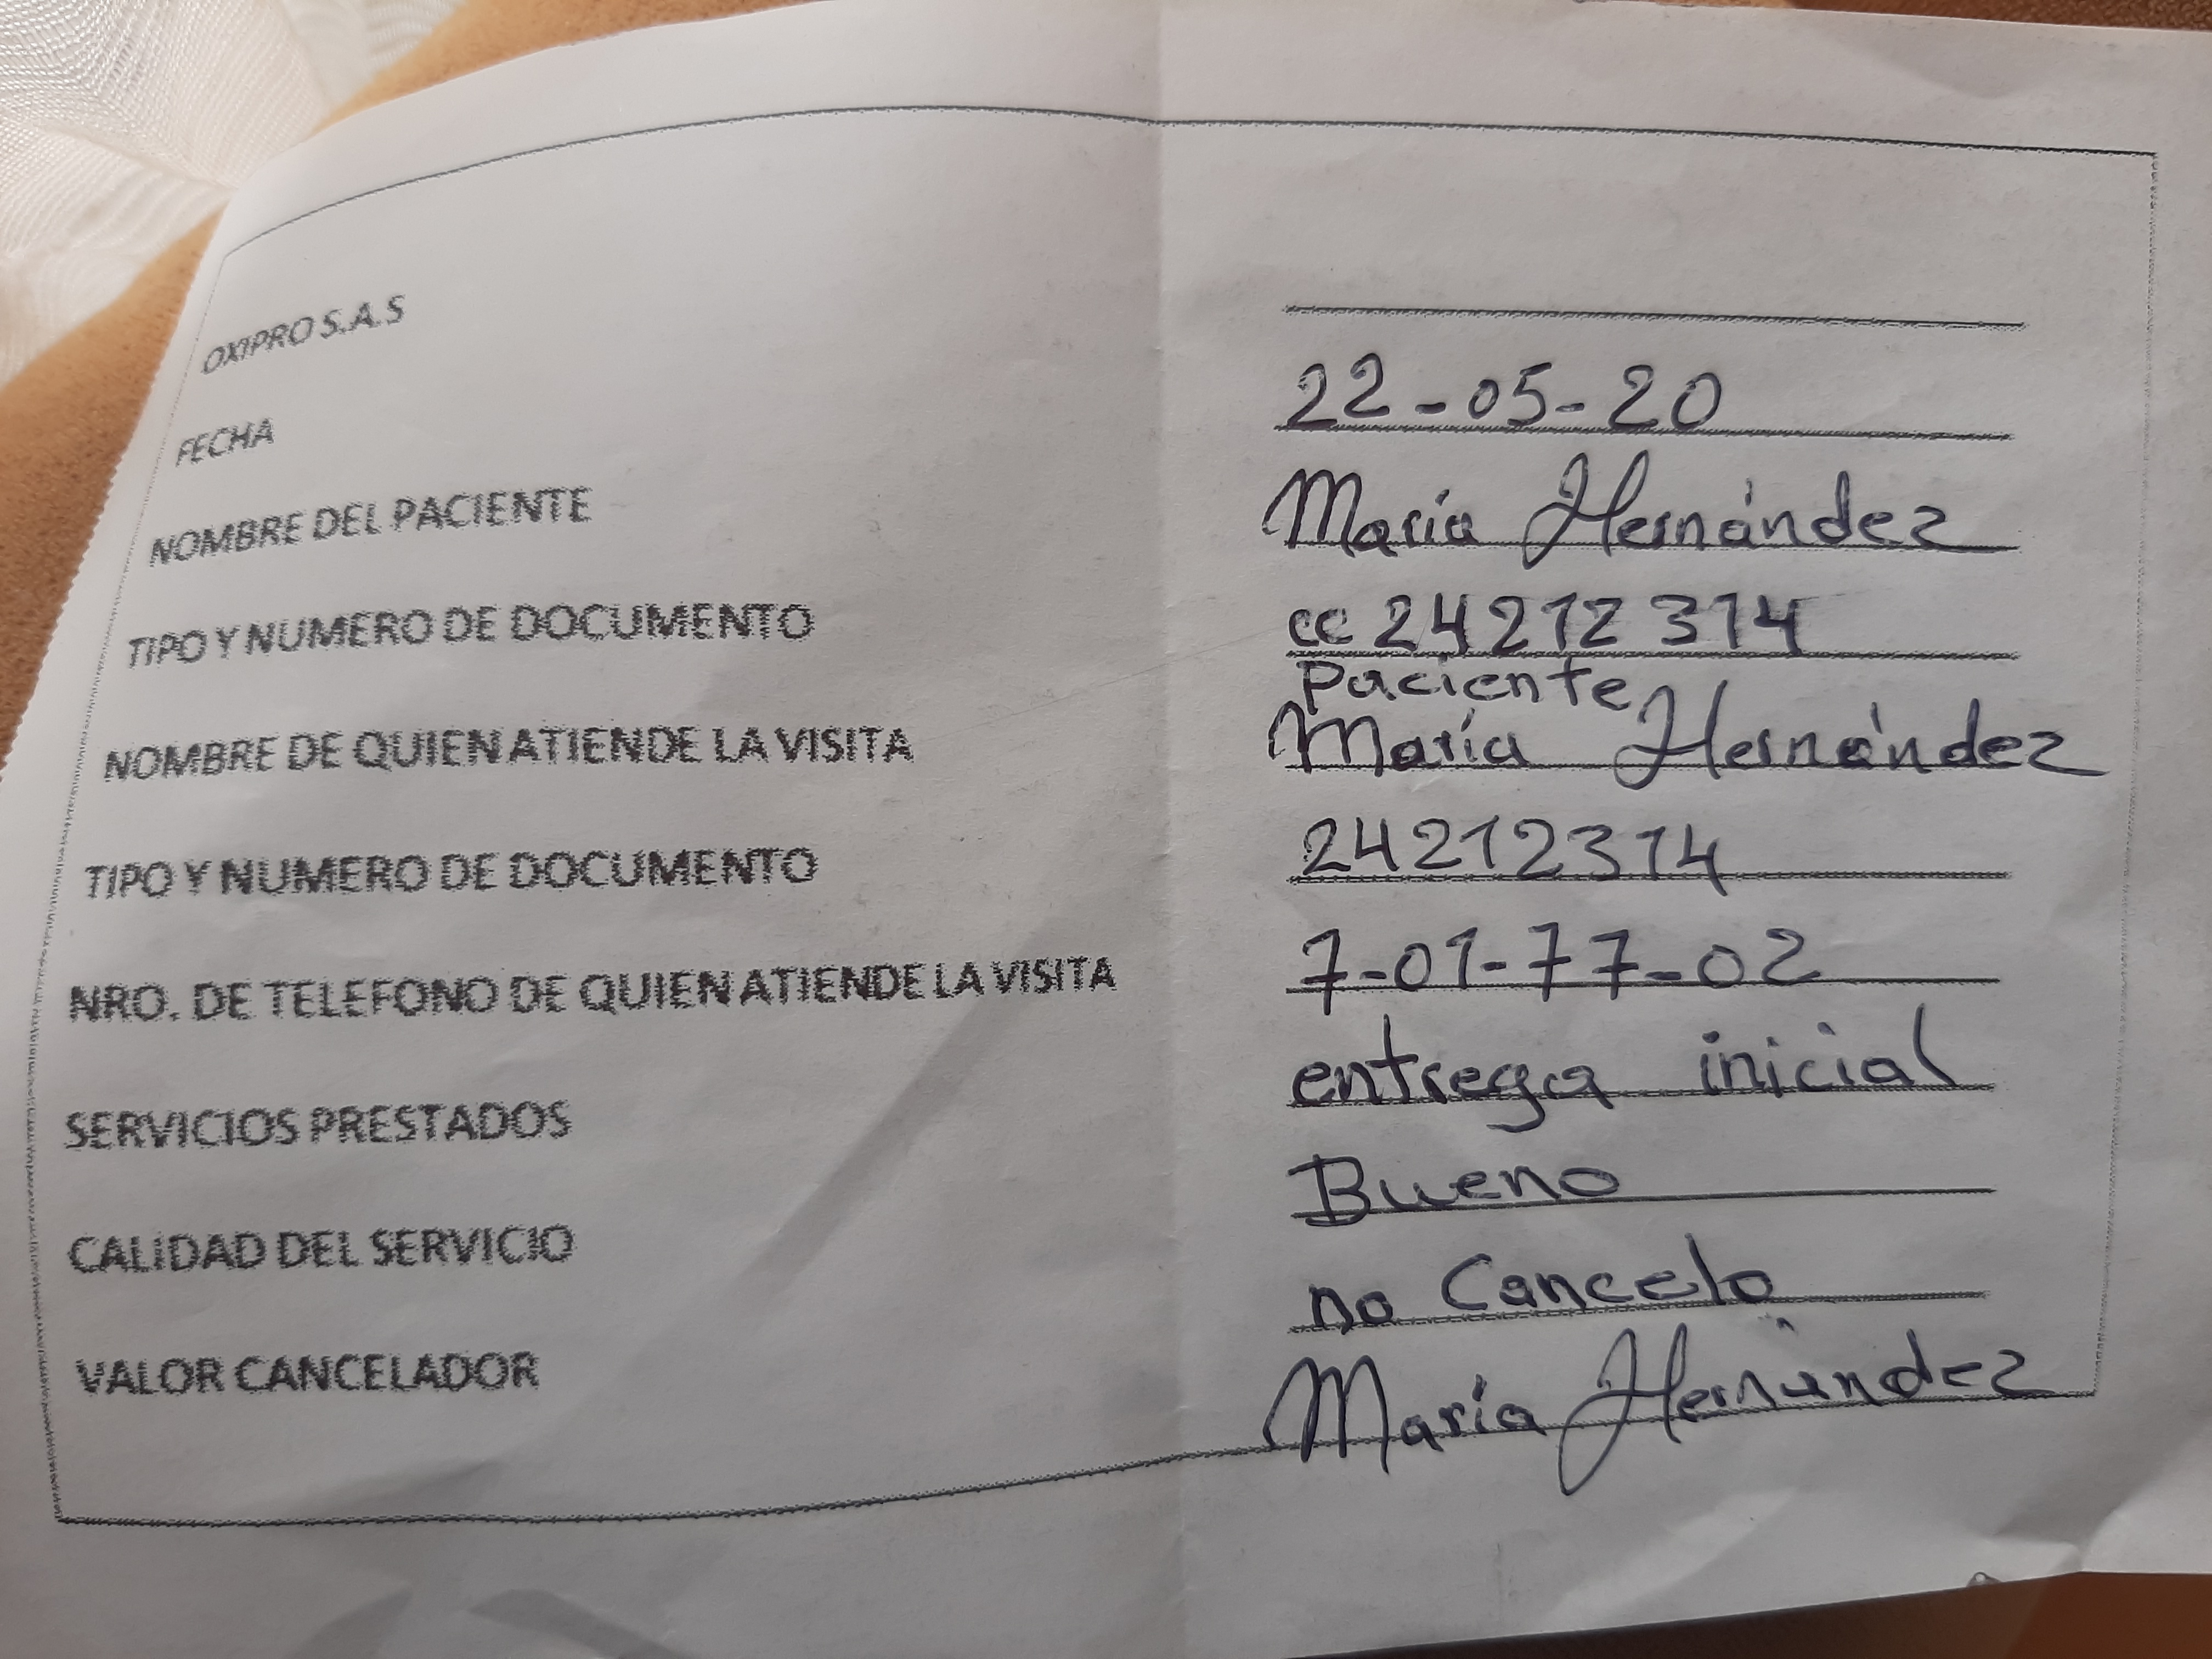 OXIPRO S.A.S
FECHA 22-05-20
NOMBRE DEL PACIENTE María Hernández
TIPO Y NUMERO DE DOCUMENTO cc 24212314
Paciente
NOMBRE DE QUIEN ATIENDE LA VISITA María Hernández
TIPO Y NUMERO DE DOCUMENTO 24212314
NRO. DE TELEFONO DE QUIEN ATIENDE LA VISITA 7-01-77-02
SERVICIOS PRESTADOS entrega inicial
CALIDAD DEL SERVICIO Bueno
VALOR CANCELADOR no Cancelo
María Hernández